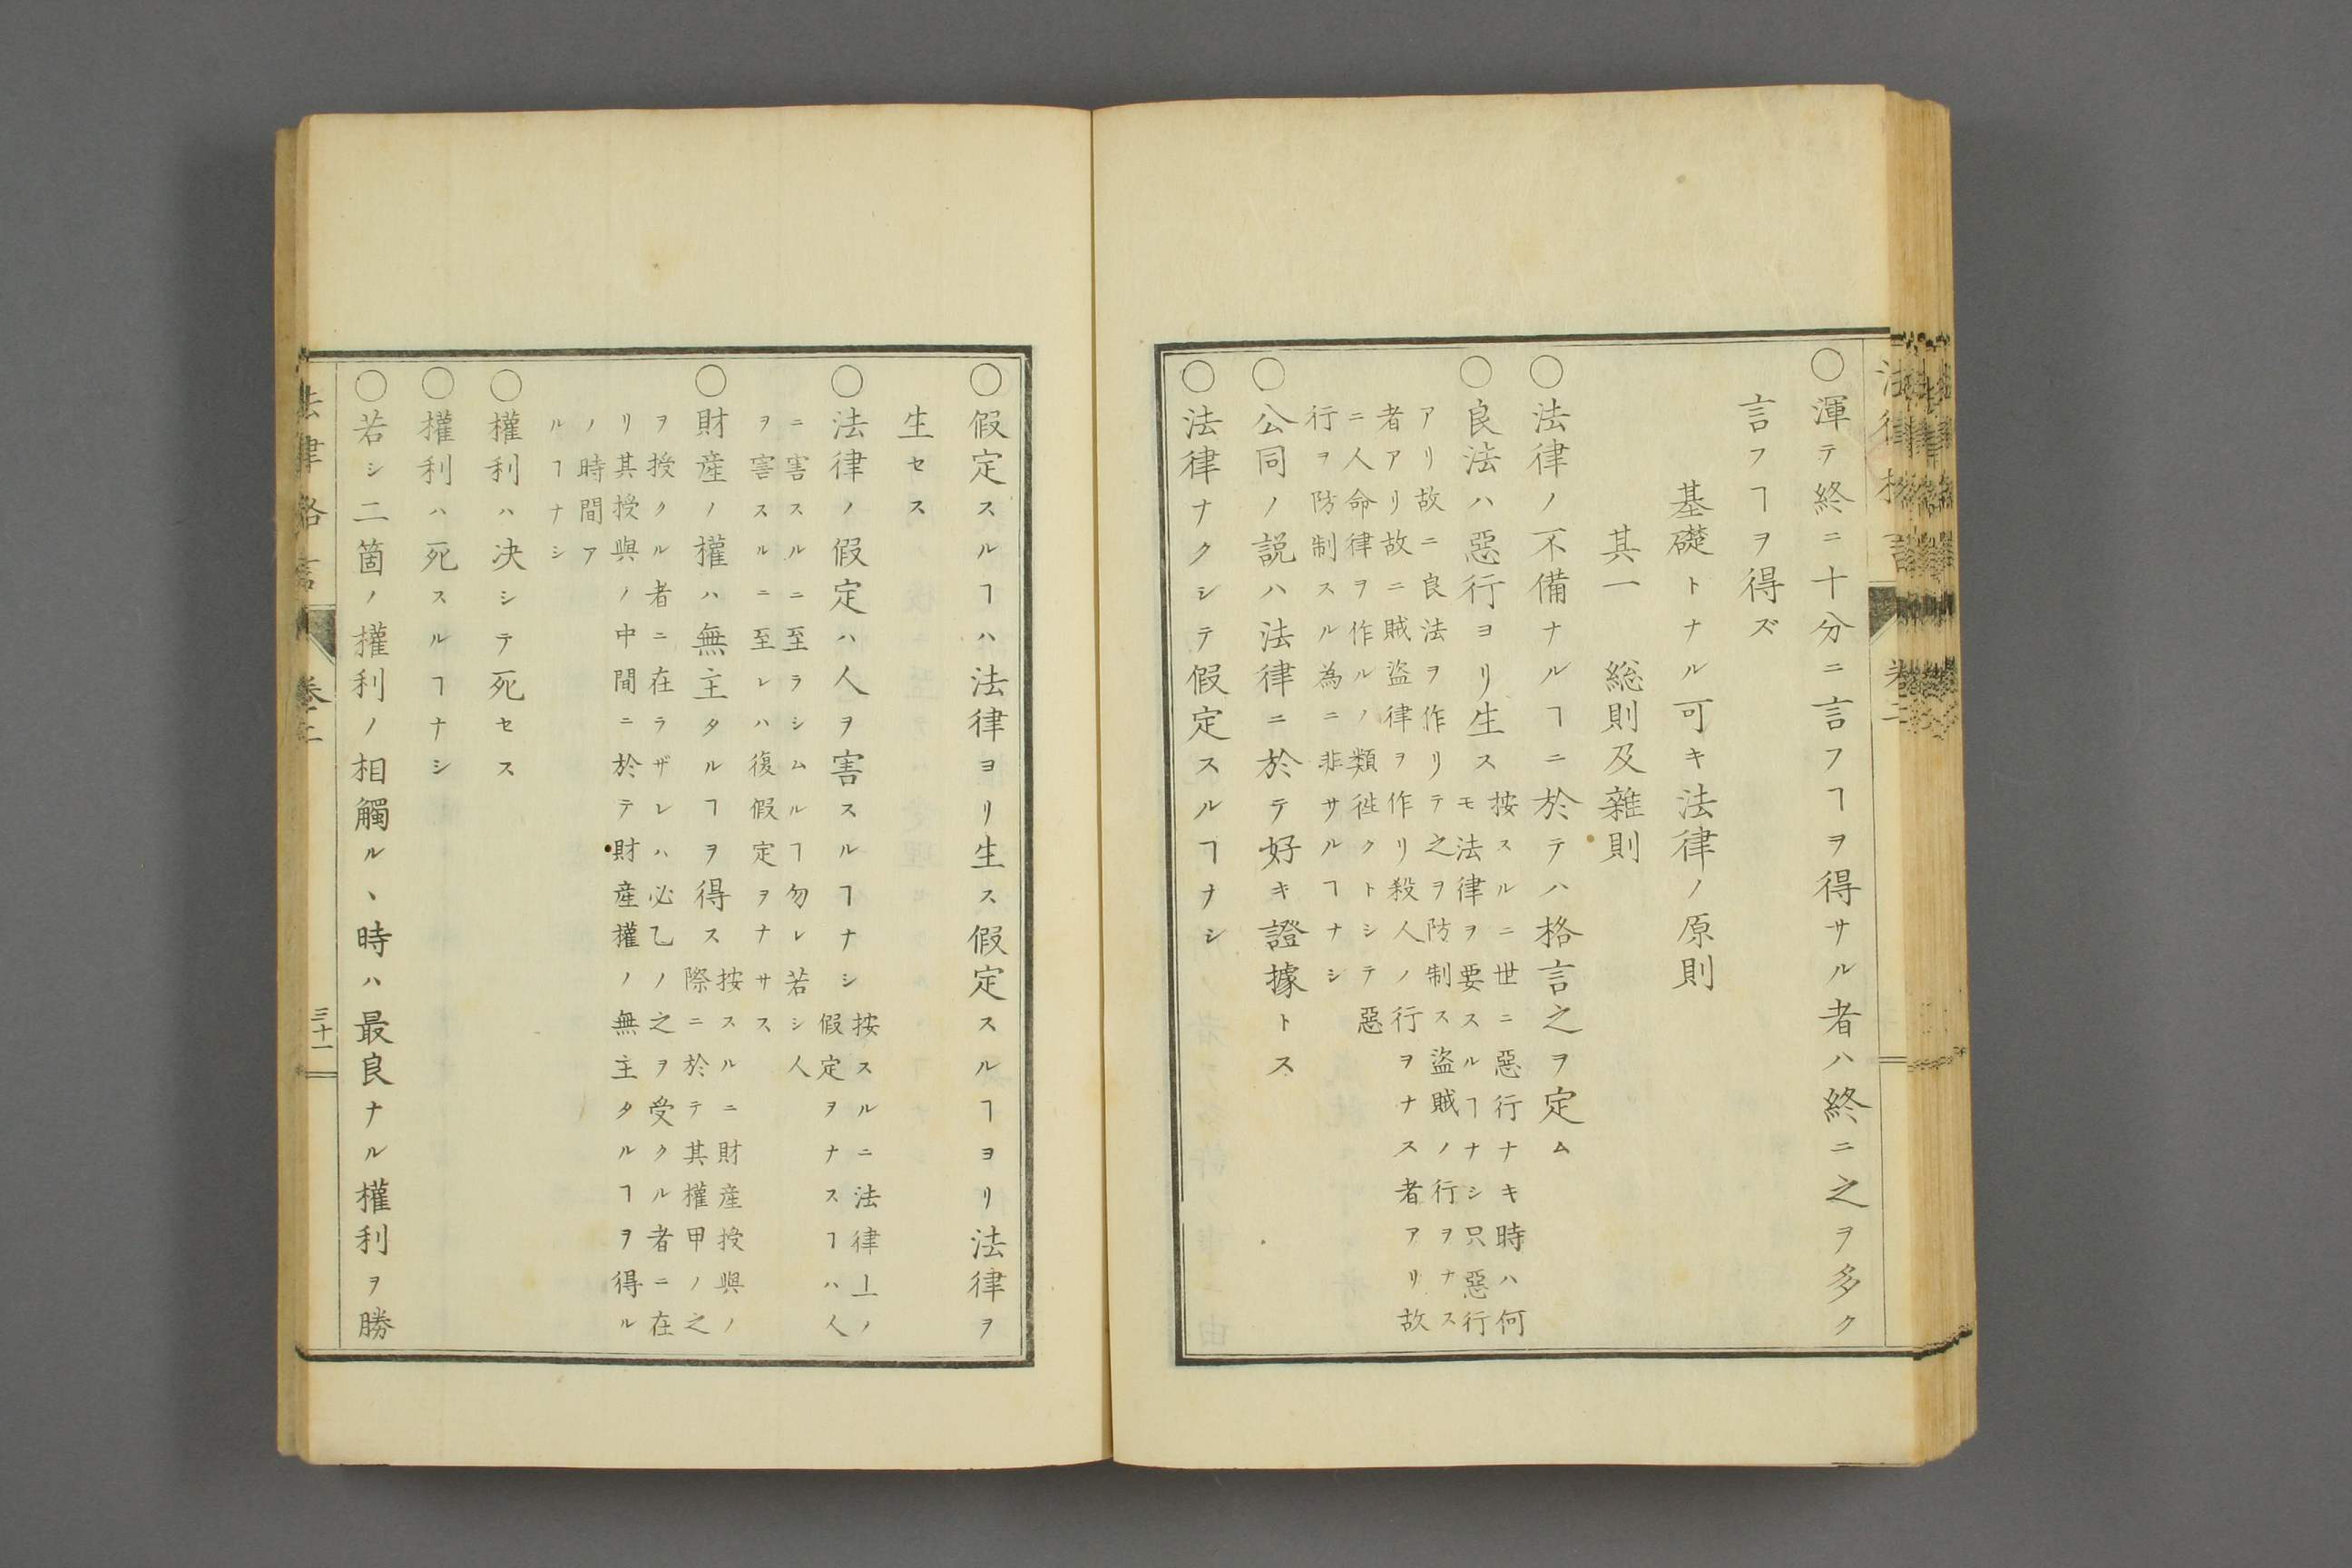 ○渾テ終ニ十分ニ言フヿヲ得サル者ハ終ニ之ヲ多ク
言フヿヲ得ズ
基礎トナル可キ法律ノ原則
其一　総則及雜則
○法律ノ不備ナルヿニ於テハ格言之ヲ定ム
○良法ハ惡行ヨリ生ス
按スルニ世ニ惡行ナキ時ハ何
モ法律ヲ要スルヿナシ只惡行
アリ故ニ良法ヲ作リテ之ヲ防制ス盗賊ノ行ヲナス
者アリ故ニ賊盗律ヲ作リ殺人ノ行ヲナス者アリ故
ニ人命律ヲ作ルノ類徃クトシテ惡
行ヲ防制スル為ニ非サルヿナシ
○公同ノ説ハ法律ニ於テ好キ證據トス
○法律ナクシテ假定スルヿナシ
○假定スルヿハ法律ヨリ生ス假定スルヿヨリ法律ヲ
生セス
○法律ノ假定ハ人ヲ害スルヿナシ
按スルニ法律上ノ
假定ヲナスヿハ人
ニ害スルニ至ラシムルヿ勿レ若シ人
ヲ害スルニ至レハ復假定ヲナサス
○財産ノ權ハ無主タルヿヲ得ス
按スルニ財産授與ノ
際ニ於テ其權甲ノ之
ヲ授クル者ニ在ラザレハ必乙ノ之ヲ受クル者ニ在
リ其授與ノ中間ニ於テ財産權ノ無主タルヿヲ得ル
ノ時間ア
ルヿナシ
○權利ハ决シテ死セス
○權利ハ死スルヿナシ
○若シ二箇ノ權利ノ相觸ルヽ時ハ最良ナル權利ヲ勝
法律格言　卷二　三十一